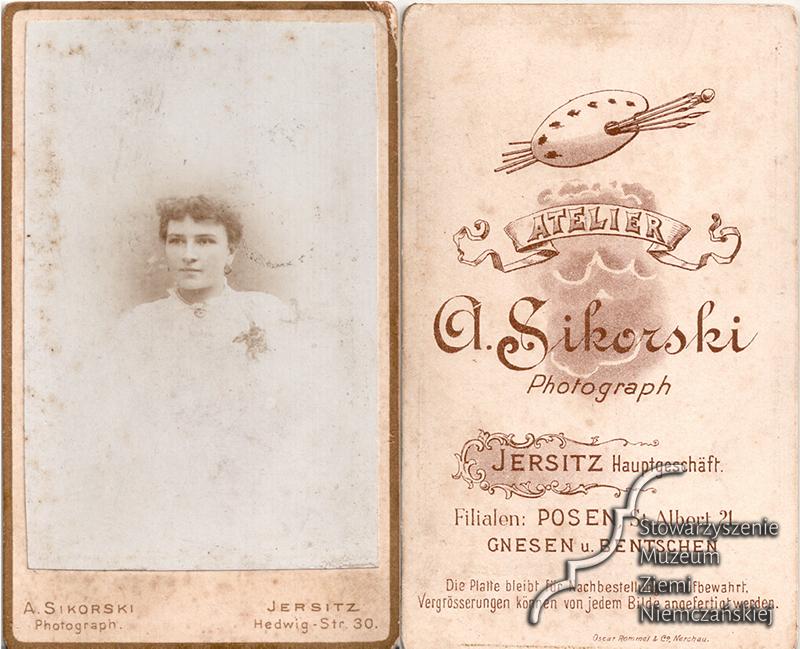 A. SIKORSKI
Photograph.
JERSITZ
Hedwig-Str. 30.
ATELIER
A. Sikorski
Photograph
JERSITZ Hauptgeschäft.
Filialen: POSEN, St. Albert 21.
GNESEN u. BENTSCHEN
Die Platte bleibt für Nachbestellungen aufbewahrt.
Vergrösserungen können von jedem Bilde angefertigt werden.
Oscar Rommel & Co, Nerchau.
Stowarzyszenie
Muzeum
Ziemi
Niemczańskiej